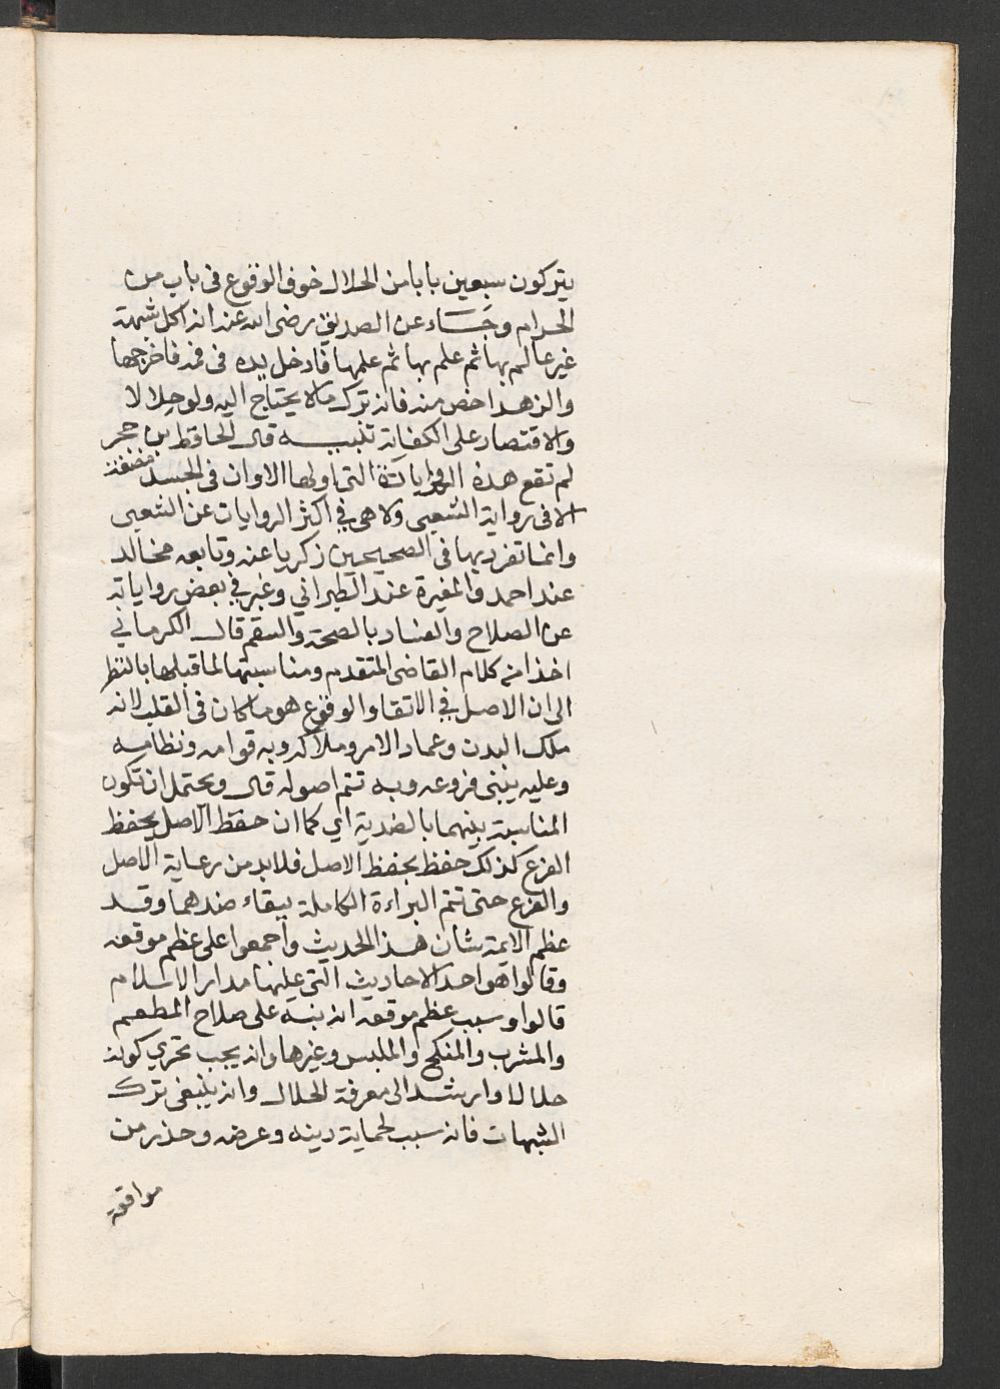 يتركون سبعين بابا من الحلال خوف الوقوع في باب من
الحرام وجاء عن الصديق رضي الله عنه انه اكل شبهة
غير عالم بها ثم علم بها ثم علمها فادخل يده في فمه فاخرجها
والزهد اخص منه فانه ترك ما لا يحتاج اليه ولو حلالا لا
والاقتصار على الكفاية تنبيه قال الحافظ بن حجر
لم تقع هذه الزيادة التي اولها الا وان في الجسد مضغة
الا في رواية الشعبي ولا هي في اكثر الروايات عن الشعبي
وانما تفرد بها في الصحيحين زكريا عنه وتابعه مخالد
عند احمد والمغيرة عند الطبراني وعبر في بعض رواياته
عن الصلاح والفساد بالصحة والسقم قال الكرماني
اخذا من كلام القاضي المتقدم ومناسبتها لما قبلها بالنظر
الى ان الاصل في الاتقا والوقوع هو ما كان في القلب لانه
ملك البدن وعماد الامر وملاكه وبه قوامه ونظامه
وعليه يبنى فروعه وبه تتم اصوله قال ويحتمل ان تكون
المناسبة بينهما بالضدية اي كما ان حفظ الاصل بحفظ
الفرع كذلك حفظ بحفظ الاصل فلا بد من رعاية الاصل
والفرع حتى تتم البراءة الكاملة ببقاء ضدهما وقد
عظم الايمة شان هذا الحديث واجمعوا على عظم موقعه
وقالوا هو احد الاحاديث التي عليها مدار الاسلام
قالوا وسبب عظم موقعه انه نبه على صلاح المطعم
والمشرب والمنكح والملبس وغيرها وانه يجب تحري كونه
حلالا وارشد الى معرفة الحلال وانه ينبغي ترك
الشبهات فانه سبب لحماية دينه وعرضه وحذر من
مواقعة